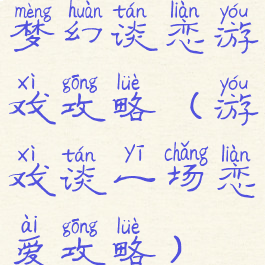 mèng huàn tán liàn yóu
梦幻谈恋游
xì gōng lüè yóu
戏攻略（游
xì tán yī chǎng liàn
戏谈一场恋
ài gōng lüè
爱攻略）